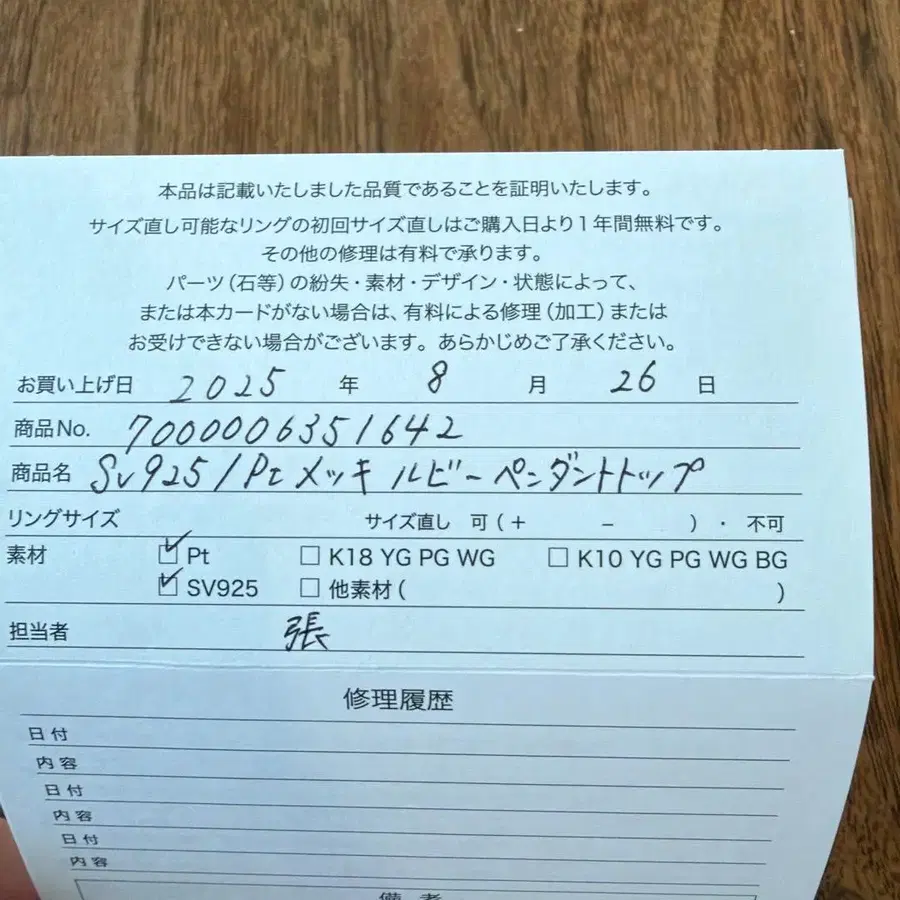 本品は記載いたしました品質であることを証明いたします。
サイズ直し可能なリングの初回サイズ直しはご購入日より1年間無料です。
その他の修理は有料で承ります。
パーツ（石等）の紛失・素材・デザイン・状態によって、
または本カードがない場合は、有料による修理（加工）または
お受けできない場合がございます。あらかじめご了承ください。
お買い上げ日 2025 年 8 月 26 日
商品No. 7000006351642
商品名 Sv925/Ptメッキ ルビーペンダントトップ
リングサイズ サイズ直し 可（＋ － ）・ 不可
素材 ☑Pt □K18 YG PG WG □K10 YG PG WG BG
☑SV925 □他素材（ ）
担当者 張
修理履歴
日付
内容
日付
内容
日付
内容
備考